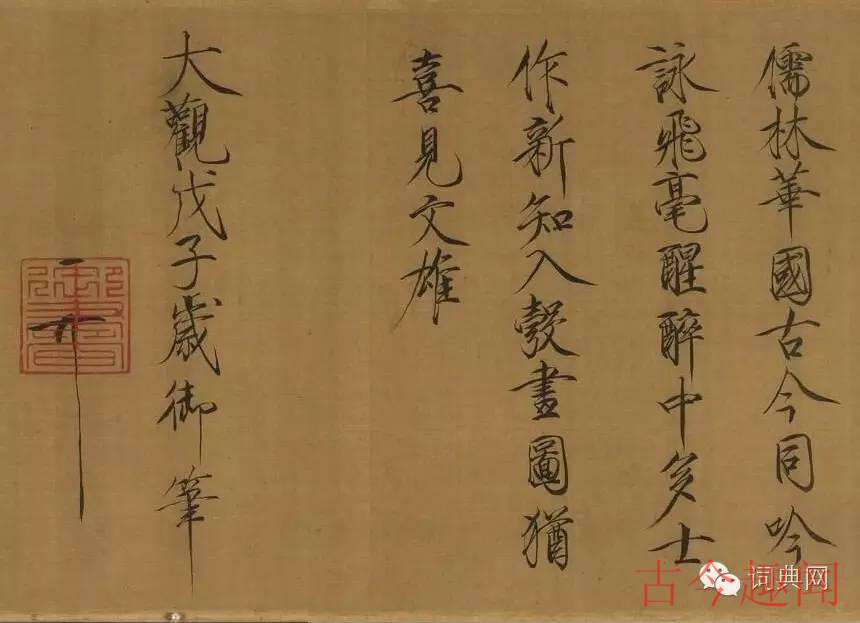 儒林華國古今同吟
詠飛毫醒醉中多士
作新知入彀畫圖猶
喜見文雄
大觀戊子歲御筆
古今趣闻
词典网